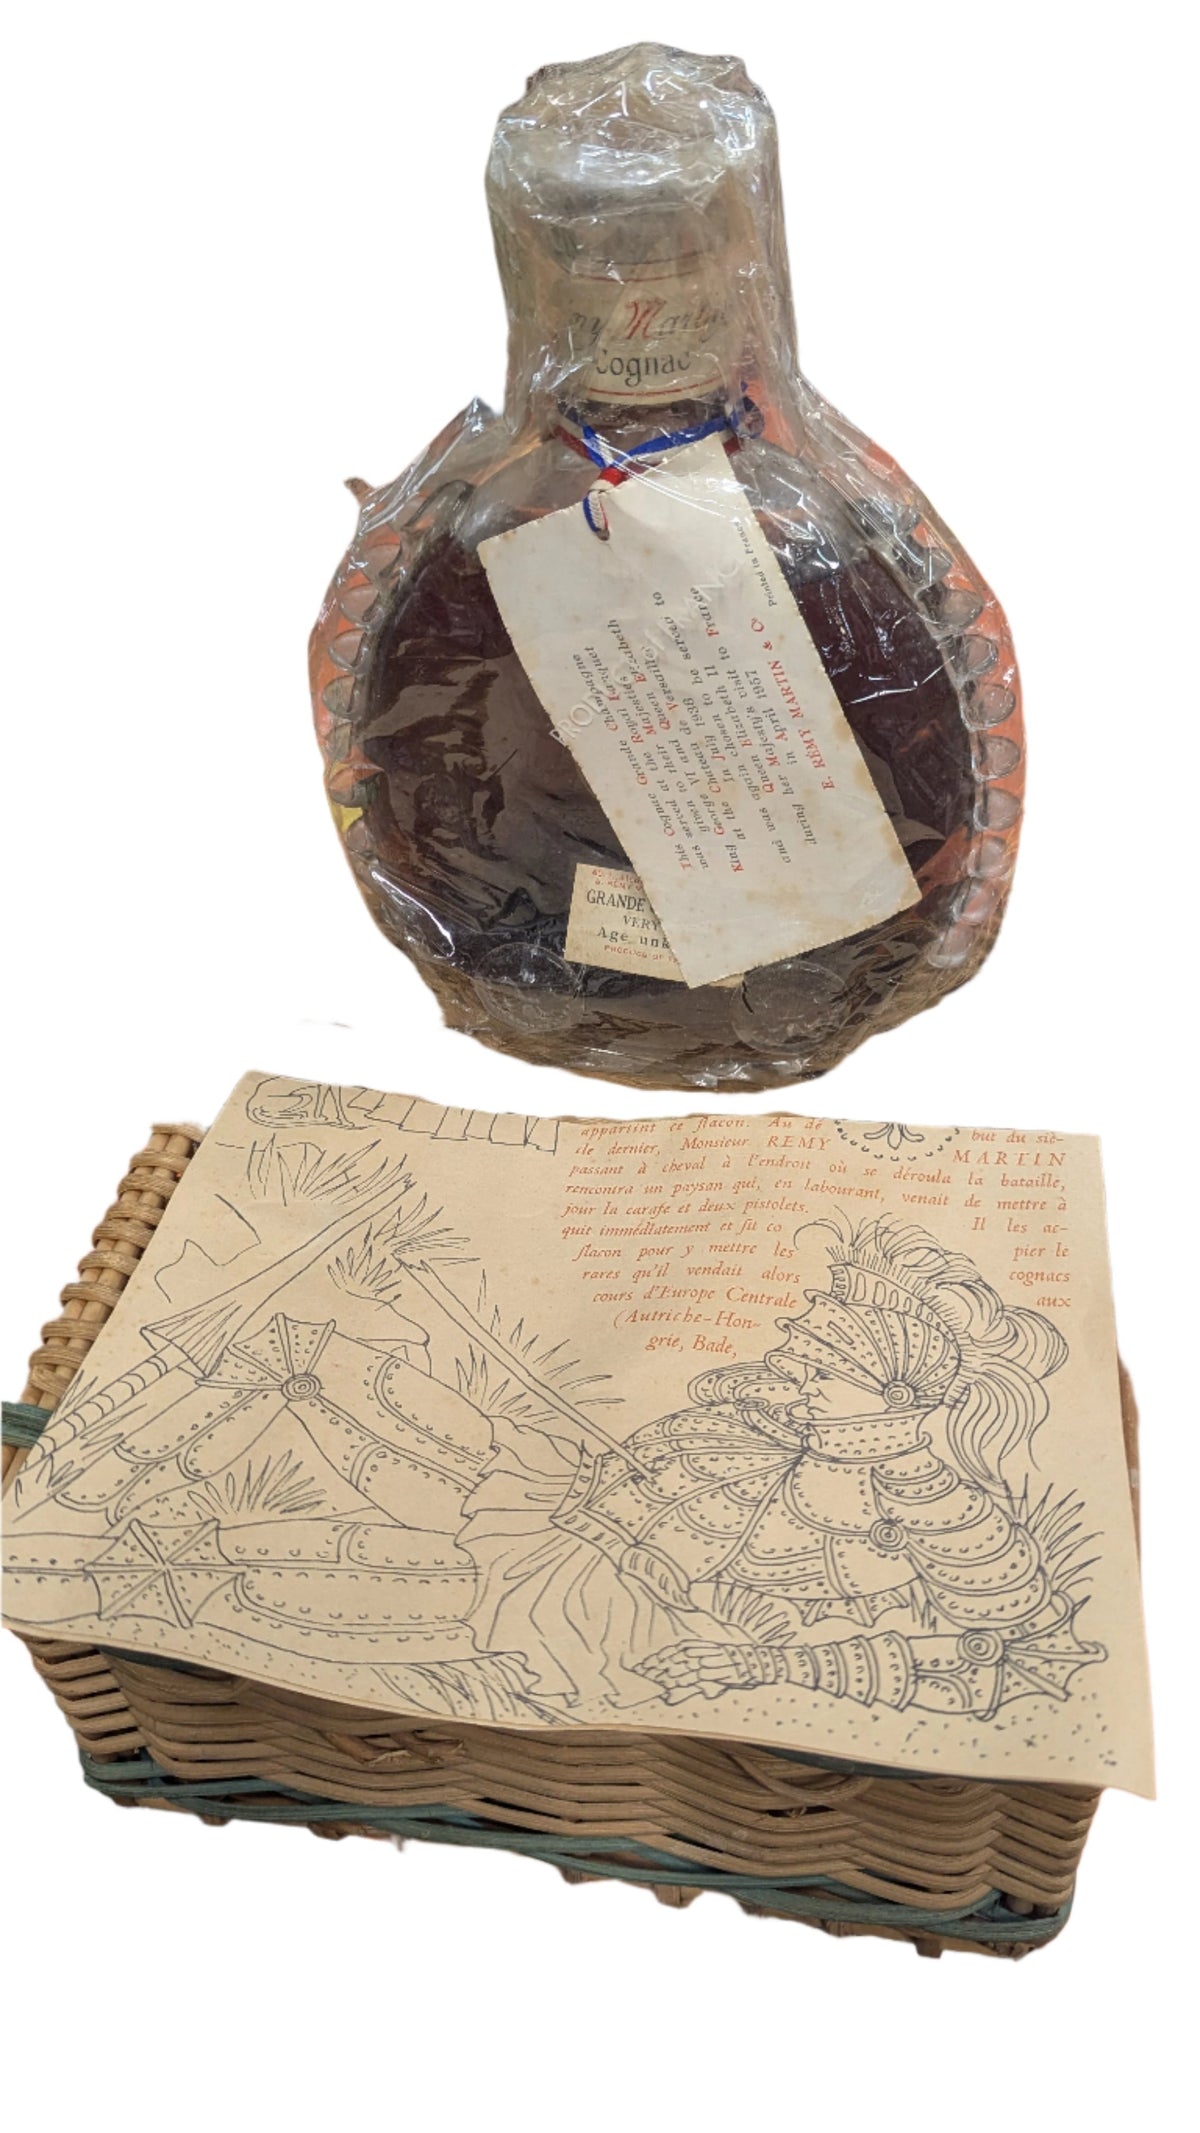 Martin
Cognac
This Cognac Grande Champagne
was served at the Royal Banquet
given to their Majesties
King George VI and Queen Elizabeth
at the Chateau de Versailles
in July 1938
and was again chosen to be served to
Queen Elizabeth II
during her Majesty's visit to France
in April 1957
E. RÉMY MARTIN & Co
Printed in France
GRANDE
VERY
Age
PRODUCE OF
appartint ce flacon. Au dé but du siè-
cle dernier, Monsieur REMY MARTIN
passant à cheval à l'endroit où se déroula la bataille,
rencontra un paysan qui, en labourant, venait de mettre à
jour la carafe et deux pistolets. Il les ac-
quit immédiatement et fit co pier le
flacon pour y mettre les cognacs
rares qu'il vendait alors aux
cours d'Europe Centrale
(Autriche-Hon-
grie, Bade,